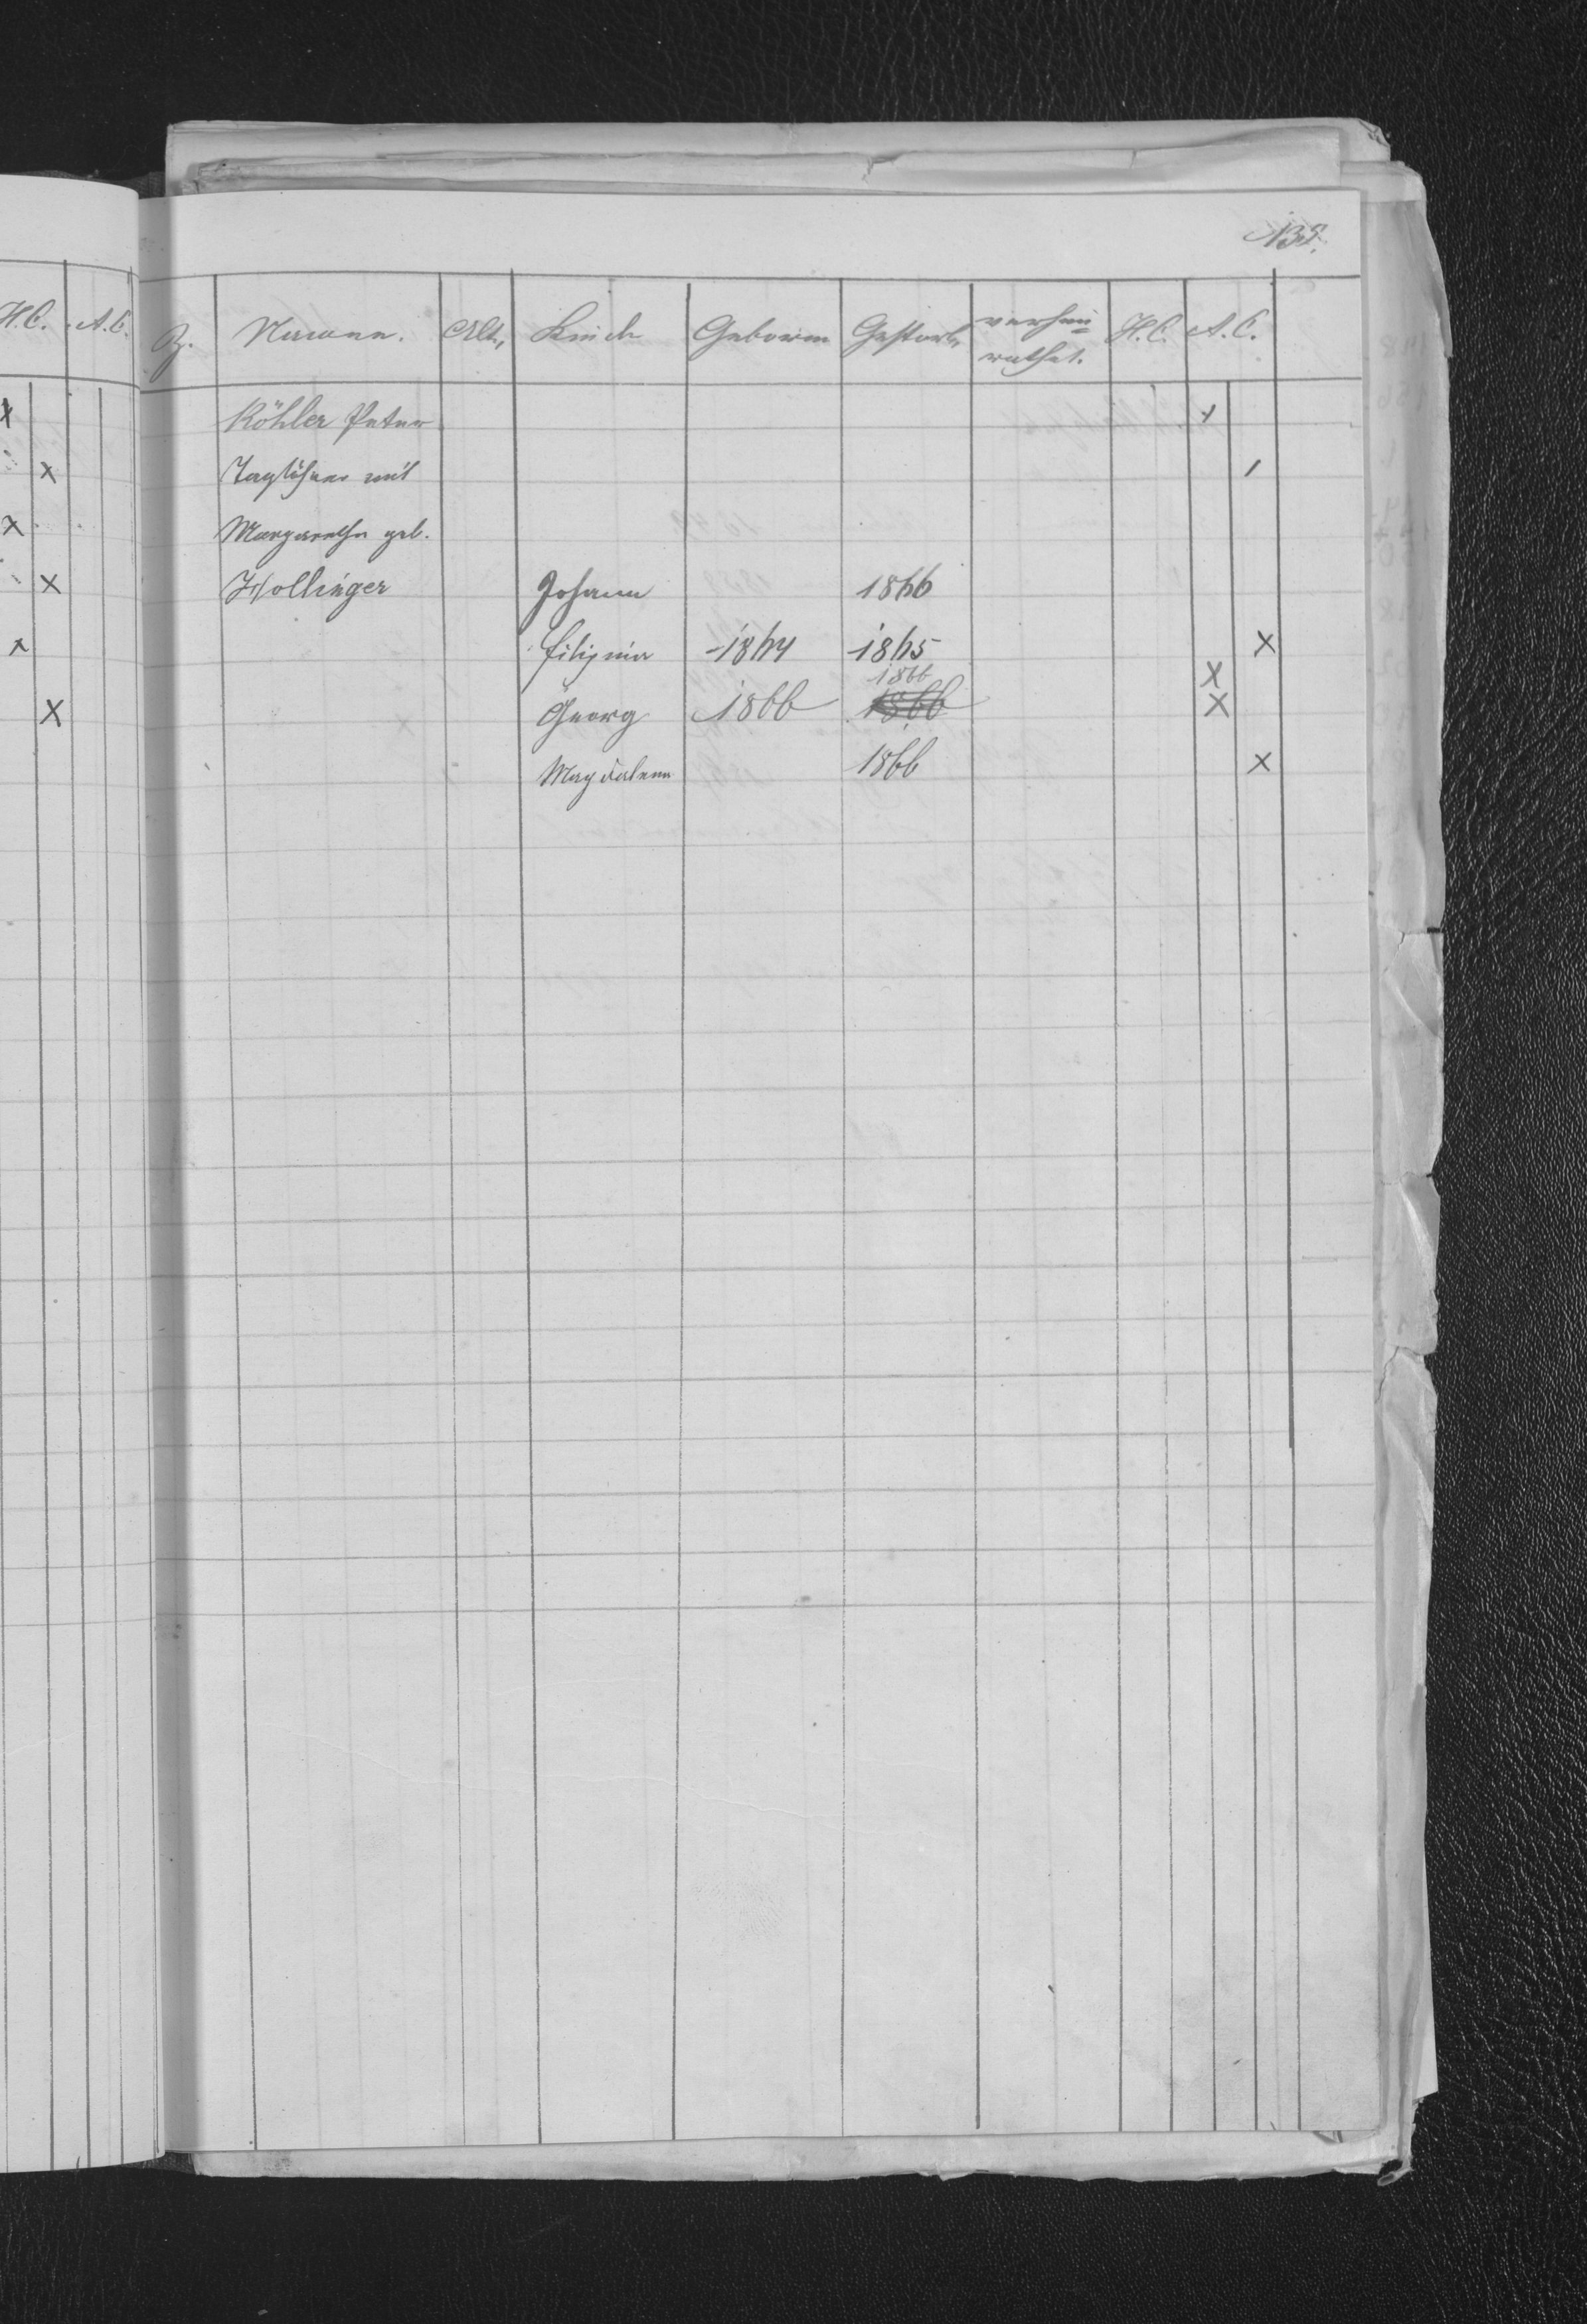 135.
H.C. A.C.
Z. Namen. Alt. Kinder Geboren Gestorb. verhei=
rathet. H.C. A.C.
Köhler Peter x
x Taglöhner mit /
x Margaretha geb.
x Hollinger Johann 1866
x Filipina 1864 1865 x
1866 x
x Georg 1866 1866 x
Magdalena 1866 x